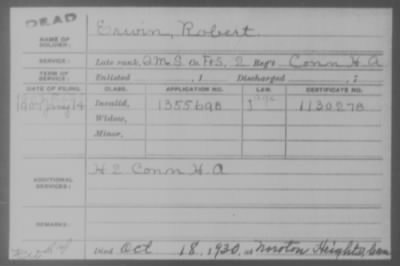 DEAD
NAME OF SOLDIER: Erwin, Robert.
SERVICE: Late rank, Q M S, Co F & S, 2 Reg't Conn H A
TERM OF SERVICE: Enlisted , 1 Discharged , 1
DATE OF FILING. CLASS. APPLICATION NO. LAW. CERTIFICATE NO.
1907 14 Invalid, 1355698 1130278
Widow,
Minor,
ADDITIONAL SERVICES: H 2 Conn H A
REMARKS:
Died Oct 18, 1930, at Noroton Heights, Conn